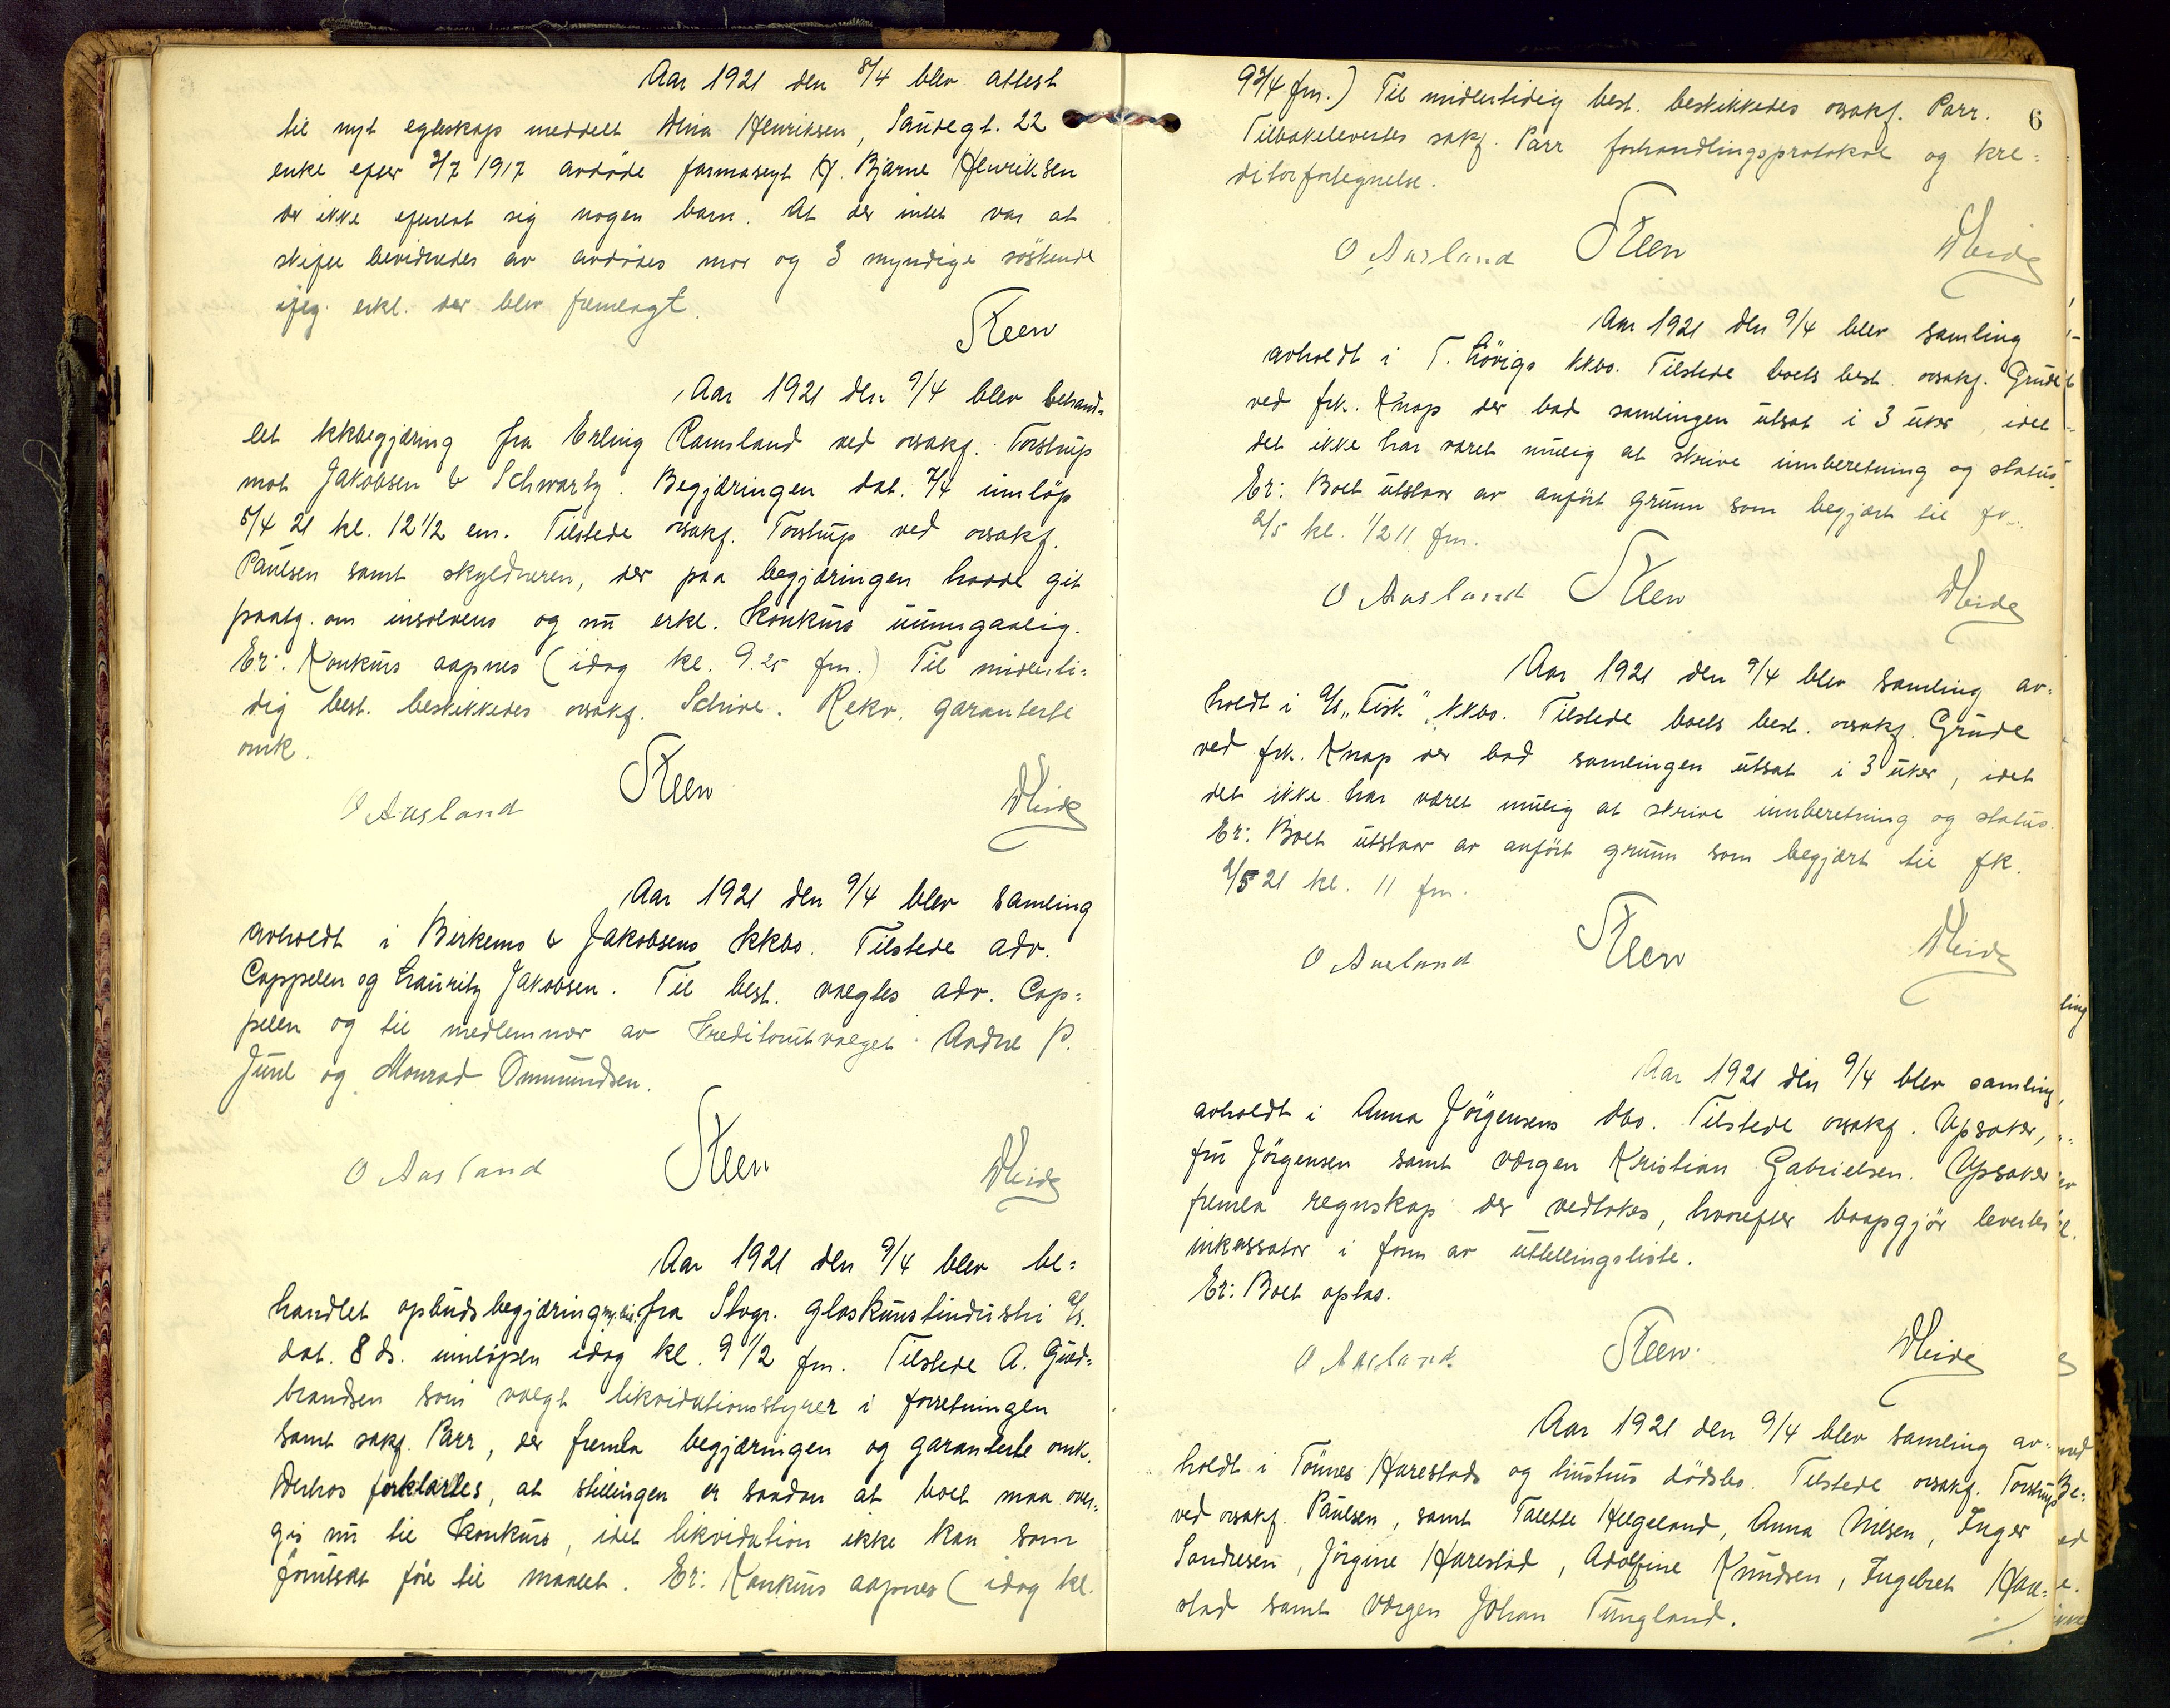 Aar 1921 den 8/4 blev attest
til nyt egteskap meddelt Alma Henriksen, Saudegt. 22
enke efter 3/7 1917 avdöde farmaseyt H. Bjarne Henriksen
der ikke efterlot sig nogen barn. At der intet var at
skifte bevidnedes av avdödes mor og 3 myndige söskende
ifeg. erkl. der blev fremlagt.
Steen
Aar 1921 den 9/4 blev behand=
let kkbegjæring fra Erling Ramsland ved orsakf. Torstrup
mot Jakobsen & Schwartz. Begjæringen dat. 7/4 innlöp
8/4 21 kl. 12 1/2 em. Tilstede orsakf. Torstrup ved orsakf.
Paulsen samt skyldneren, der paa begjæringen hadde git
paatg. om insolvens og nu erkl. konkurs uunngaalig.
Er: Konkurs aapnes (idag kl. 9.25 fm.) Til midlerti=
dig best. beskikkedes orsakf. Schive. Rekv. garanterte
omk.
O Ausland Steen Heide
Aar 1921 den 9/4 blev samling
avholdt i Birkemo & Jakobsens kkbo. Tilstede adv.
Coppelen og Lauritz Jakobsen. Til best. valgtes adv. Cap=
pelen og til medlemmer av kreditorutvalget Andre P.
Juul og Monrad Ommundsen.
O Ausland Steen Heide
Aar 1921 den 9/4 blev be=
handlet opbudsbegjæring fra Stvgr. glaskunstindustri A/s.
dat. 8 ds. innlöpen idag kl. 9 1/2 fm. Tilstede A. Guld=
brandsen som valgt likvidationsstyrer i forretningen
samt sakf. Parr, der fremla begjæringen og garanterte omk.
Derhos forklartes, at stillingen er saadan at boet maa over=
gis nu til konkurs, idet likvidation ikke kan som
forutsat före til maalet. Er: Konkurs aapnes (idag kl.
6
9 3/4 fm.) Til midlertidig best. beskikkedes orsakf. Parr.
Tilbakelevertes sakf. Parr forhandlingsprotokol og kre=
ditorfortegnelse.
O Ausland Steen Heide
Aar 1921 den 9/4 blev samling
avholdt i T. Hövigs kkbo. Tilstede boets best. orsakf. Grude
ved frk. Knap der bad samlingen utsat i 3 uker, idet
det ikke har været mulig at skrive innberetning og status.
Er: Boet utstaar av anfört grunn som begjært til fk.
2/5 kl. 1/2 11 fm.
O Ausland Steen Heide
Aar 1921 den 9/4 blev samling av=
holdt i A/s "Fisk" kkbo. Tilstede boets best. orsakf. Grude
ved frk. Knap der bad samlingen utsat i 3 uker, idet
det ikke har været mulig at skrive innberetning og status.
Er: Boet utstaar av anfört grunn som begjært til fk.
2/5 21 kl. 11 fm.
O Ausland Steen Heide
Aar 1921 den 9/4 blev samling
avholdt i Anna Jörgensens dbo. Tilstede orsakf. Opsaker,
fru Jörgensen samt værgen Kristian Gabrielsen. Opsaker
fremla regnskap der vedtokes, hvorefter boopgjör levertes
inkassator i form av utlellingsliste.
Er: Boet optas.
O Ausland Steen Heide
Aar 1921 den 9/4 blev samling av=
holdt i Tönnes Harestads og hustrus dödsbo. Tilstede orsakf. Torstrup
ved orsakf. Paulsen, samt Talette Helgeland, Anna Nilsen, Inger
Sandresen, Jörgine Harestad, Adolfine Knudsen, Ingebret Hare=
stad samt værgen Johan Tungland.